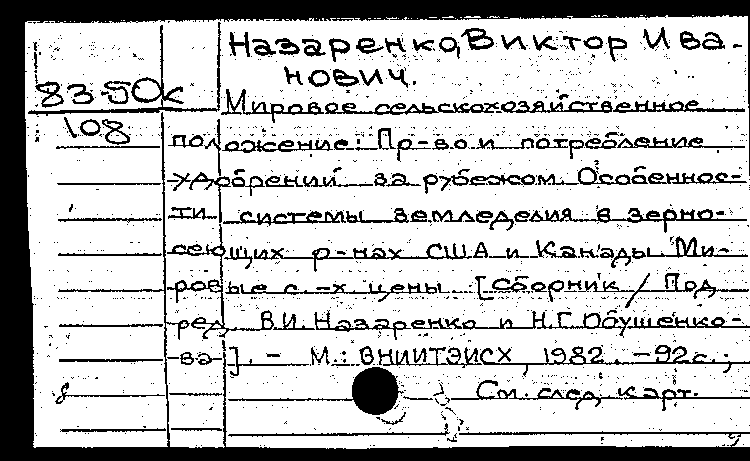 Назаренко, Виктор Ива-
нович.
83-50к
108
Мировое сельскохозяйственное
положение: Пр-во и потребление
удобрений за рубежом. Особеннос-
ти системы земледелия в зерно-
сеющих р-нах США и Канады. Ми-
ровые с.-х цены. [Сборник / Под
ред. В.И. Назаренко и Н.Г. Обушенко-
ва]. - М.: ВНИИТЭИСХ, 1982. - 92с.;
См. след. карт.
8